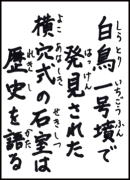 白鳥一号墳で
発見された
横穴式の石室は
歴史を語る
しら とり いち ごう ふん
はっ けん
よこ あな しき せき しつ
れき し かた